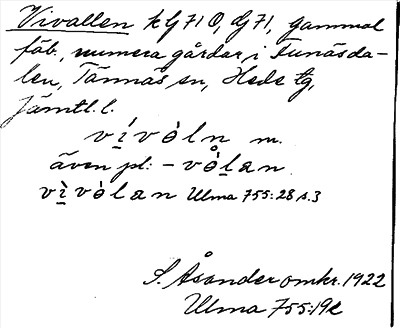 Vivallen k G 71 O, dG 71, gammal
fäb., numera gårdar, i Funäsda-
len, Tännäs sn, Hede tg,
Jämtl. l.
vívòln m.
även pl: -vålan
vìvòlan Ulma 755:28 s.3
S. Åsander omkr. 1922
Ulma 755:19c